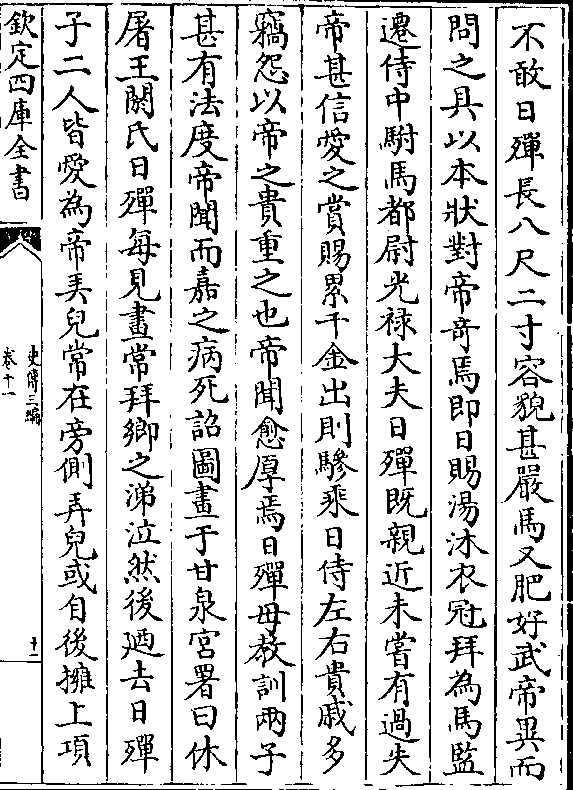 不敢日殫長八尺二寸容貌甚嚴馬又肥好武帝異而
問之具以本狀對帝竒焉即日賜湯沐衣冠拜為馬監
遷侍中駙馬都尉光禄大夫日殫既親近未嘗有過失
帝甚信愛之賞賜累千金出則驂乘日侍左右貴戚多
竊怨以帝之貴重之也帝聞愈厚焉日殫母教訓兩子
甚有法度帝聞而嘉之病死詔圖畫于甘泉宮署曰休
屠王閼氏日殫每見畫常拜鄉之涕泣然後廼去日殫
子二人皆愛為帝弄兒常在旁側弄兒或自後擁上項
欽定四庫全書
史傳三編
卷十一
十二